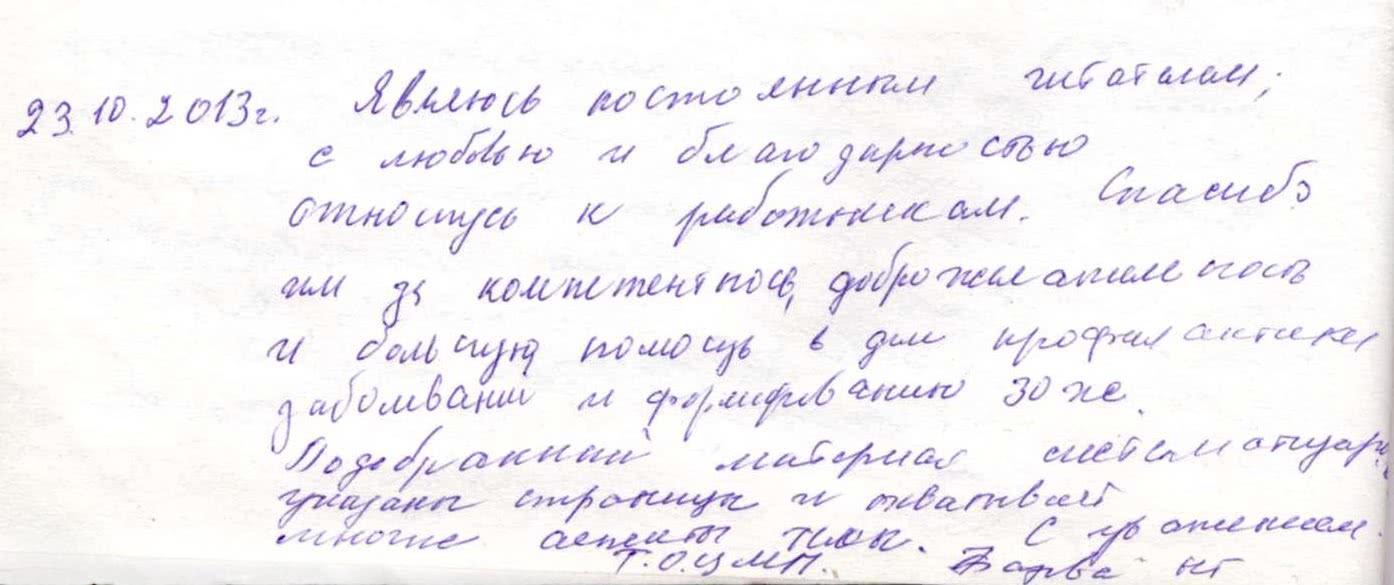 23.10.2013г. Являюсь постоянным читателем,
с любовью и благодарностью
отношусь к работникам. Спасибо
им за компетентность, доброжелательность
и большую помощь в деле профилактики
заболеваний и формированию ЗОЖ.
Подобранный материал систематизир.,
указаны страницы и охватывает
многие аспекты темы. С уважением.
Т.О.ЦМП.